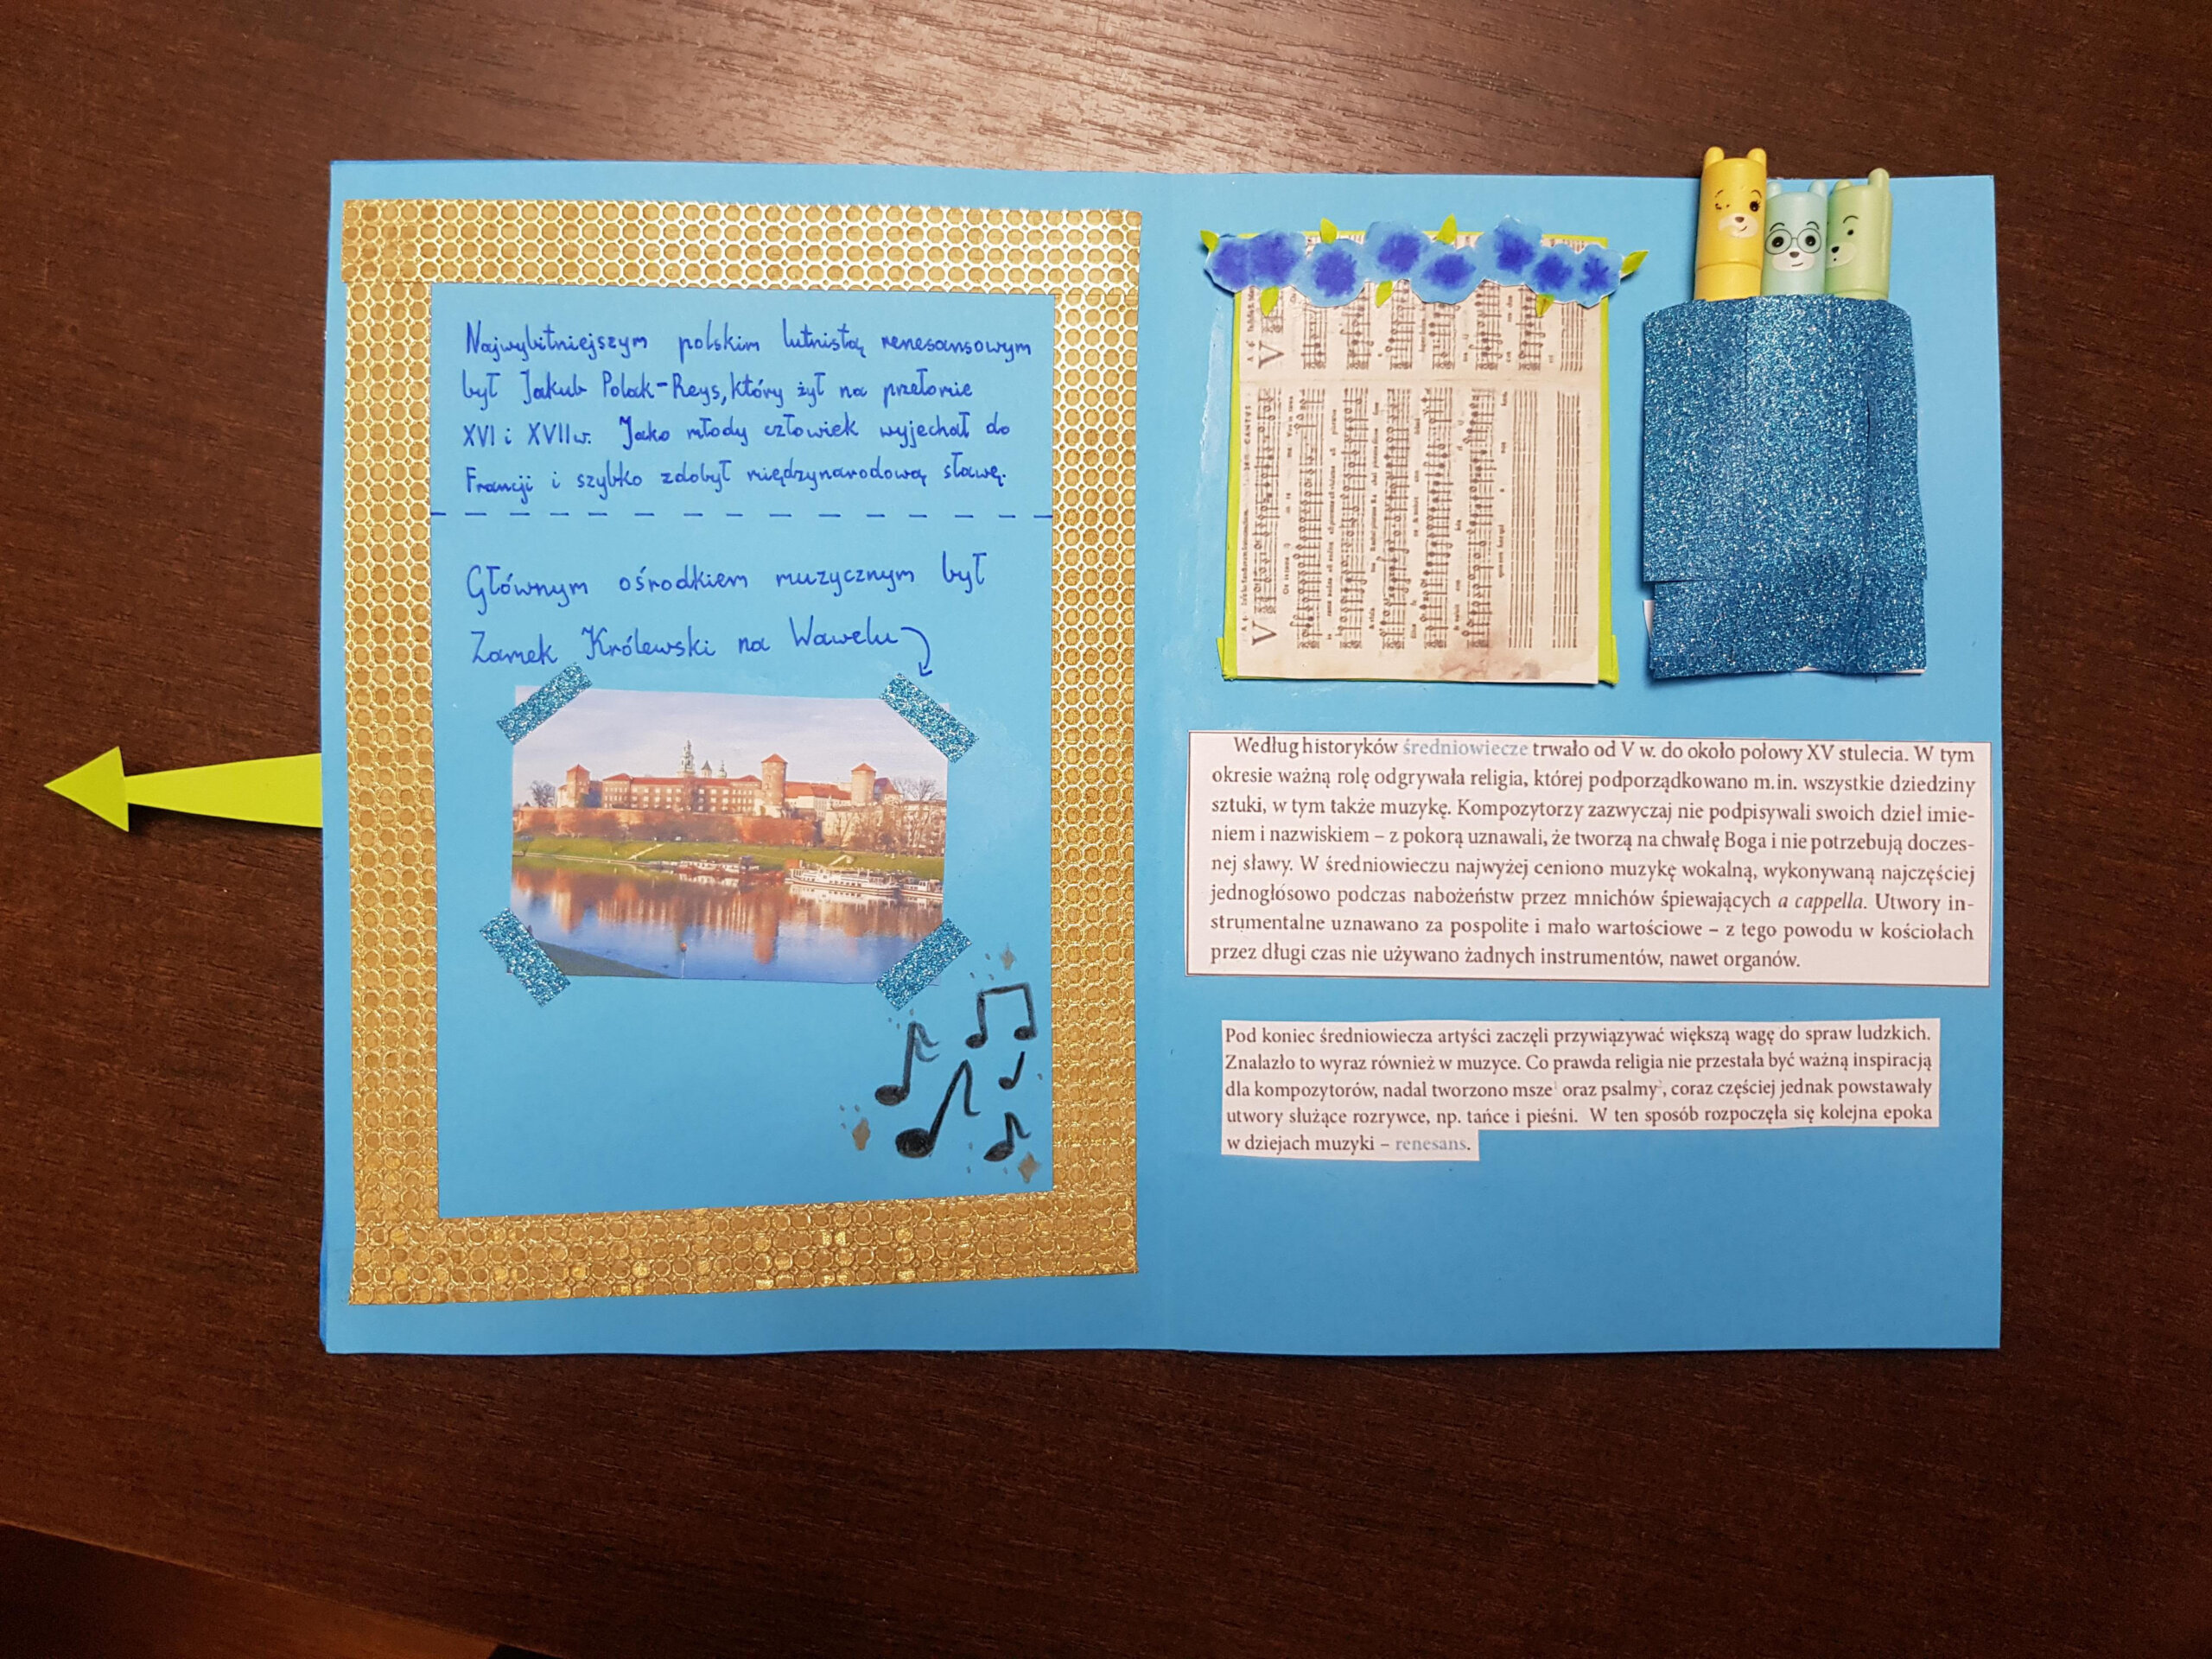 Najwybitniejszym polskim lutnistą renesansowym
był Jakub Polak-Reys, który żył na przełomie
XVI i XVII w. Jako młody człowiek wyjechał do
Francji i szybko zdobył międzynarodową sławę.
Głównym ośrodkiem muzycznym był
Zamek Królewski na Wawelu
Według historyków średniowiecze trwało od V w. do około połowy XV stulecia. W tym
okresie ważną rolę odgrywała religia, której podporządkowano m.in. wszystkie dziedziny
sztuki, w tym także muzykę. Kompozytorzy zazwyczaj nie podpisywali swoich dzieł imie-
niem i nazwiskiem – z pokorą uznawali, że tworzą na chwałę Boga i nie potrzebują doczes-
nej sławy. W średniowieczu najwyżej ceniono muzykę wokalną, wykonywaną najczęściej
jednogłosowo podczas nabożeństw przez mnichów śpiewających a cappella. Utwory in-
strumentalne uznawano za pospolite i mało wartościowe – z tego powodu w kościołach
przez długi czas nie używano żadnych instrumentów, nawet organów.
Pod koniec średniowiecza artyści zaczęli przywiązywać większą wagę do spraw ludzkich.
Znalazło to wyraz również w muzyce. Co prawda religia nie przestała być ważną inspiracją
dla kompozytorów, nadal tworzono msze¹ oraz psalmy², coraz częściej jednak powstawały
utwory służące rozrywce, np. tańce i pieśni. W ten sposób rozpoczęła się kolejna epoka
w dziejach muzyki – renesans.